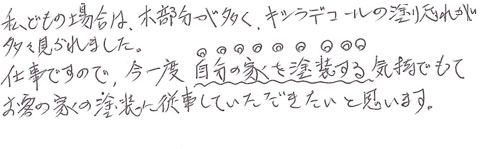 私どもの場合は、木部分が多く、キシラデコールの塗り忘れが
多々見られました。
仕事ですので、今一度自分の家を塗装する気持でもて
お客の家の塗装に従事していただきたいと思います。